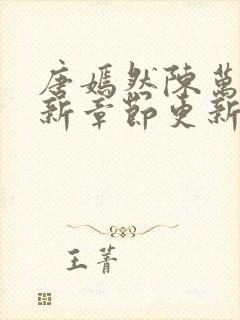 唐嫣然陳萬
新章節更新
王菁